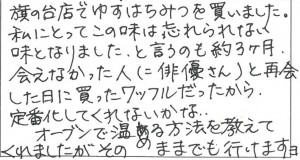 旗の台店でゆずはちみつを買いました。
私にとってこの味は忘れられない
味となりました。と言うのも約3ヶ月
会えなかった人(に俳優さん)と再会
した日に買ったワッフルだったから。
定番化してくれないかな..
オーブンで温める方法を教えて
くれましたがそのままでも行けます日